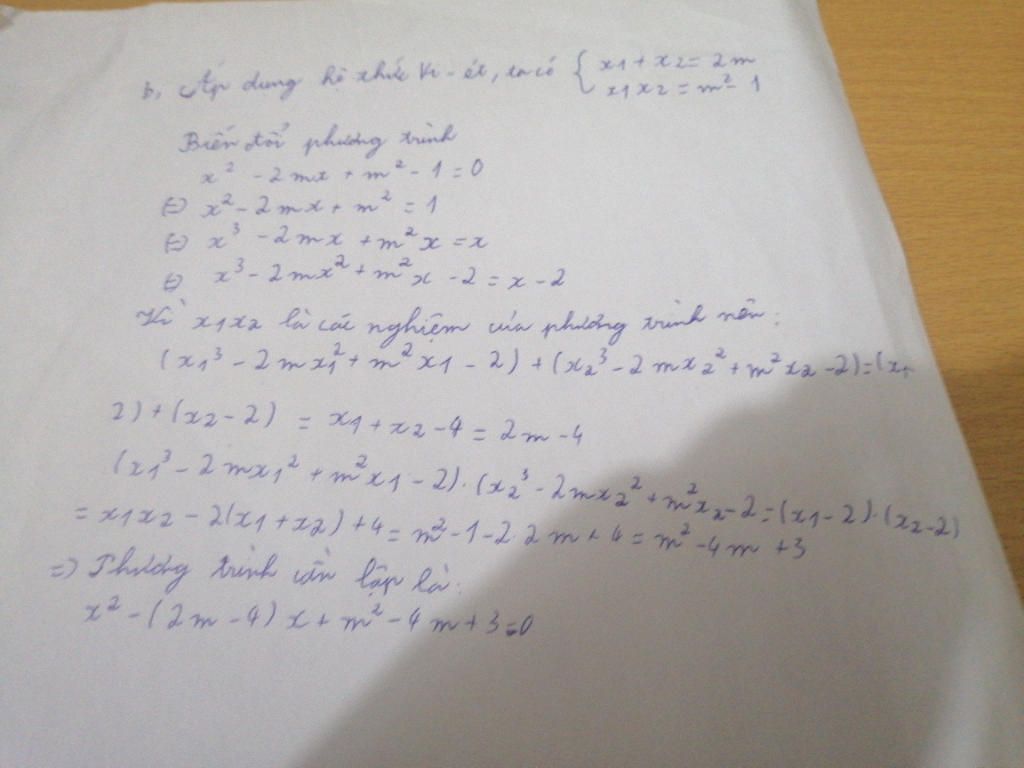 b, Áp dụng hệ thức Vi-ét, ta có { x1 + x2 = 2m
x1x2 = m² - 1
Biến đổi phương trình
x² - 2mx + m² - 1 = 0
(=) x² - 2mx + m² = 1
(=) x³ - 2mx + m²x = x
(=) x³ - 2mx² + m²x - 2 = x - 2
Vì x1x2 là các nghiệm của phương trình nên:
(x1³ - 2mx1² + m²x1 - 2) + (x2³ - 2mx2² + m²x2 - 2) = (x1
2) + (x2 - 2) = x1 + x2 - 4 = 2m - 4
(x1³ - 2mx1² + m²x1 - 2) . (x2³ - 2mx2² + m²x2 - 2 = (x1 - 2) . (x2 - 2)
= x1x2 - 2(x1 + x2) + 4 = m² - 1 - 2.2m + 4 = m² - 4m + 3
=) Phương trình cần lập là:
x² - (2m - 4)x + m² - 4m + 3 = 0